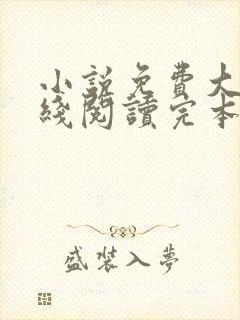 小說免費大
綫閱讀完本
盛裝入夢